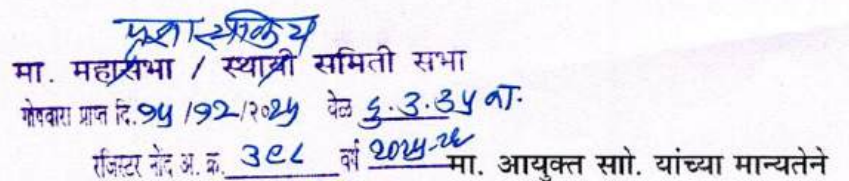 प्रशासकिय
मा. महासभा / स्थायी समिती सभा
गोषवारा प्राप्त दि. १५/१२/२०२५ वेळ दु. ३.३५ वा.
रजिस्टर नोंद अ. क्र. ३९८ वर्ष २०२५-२६ मा. आयुक्त साो. यांच्या मान्यतेने